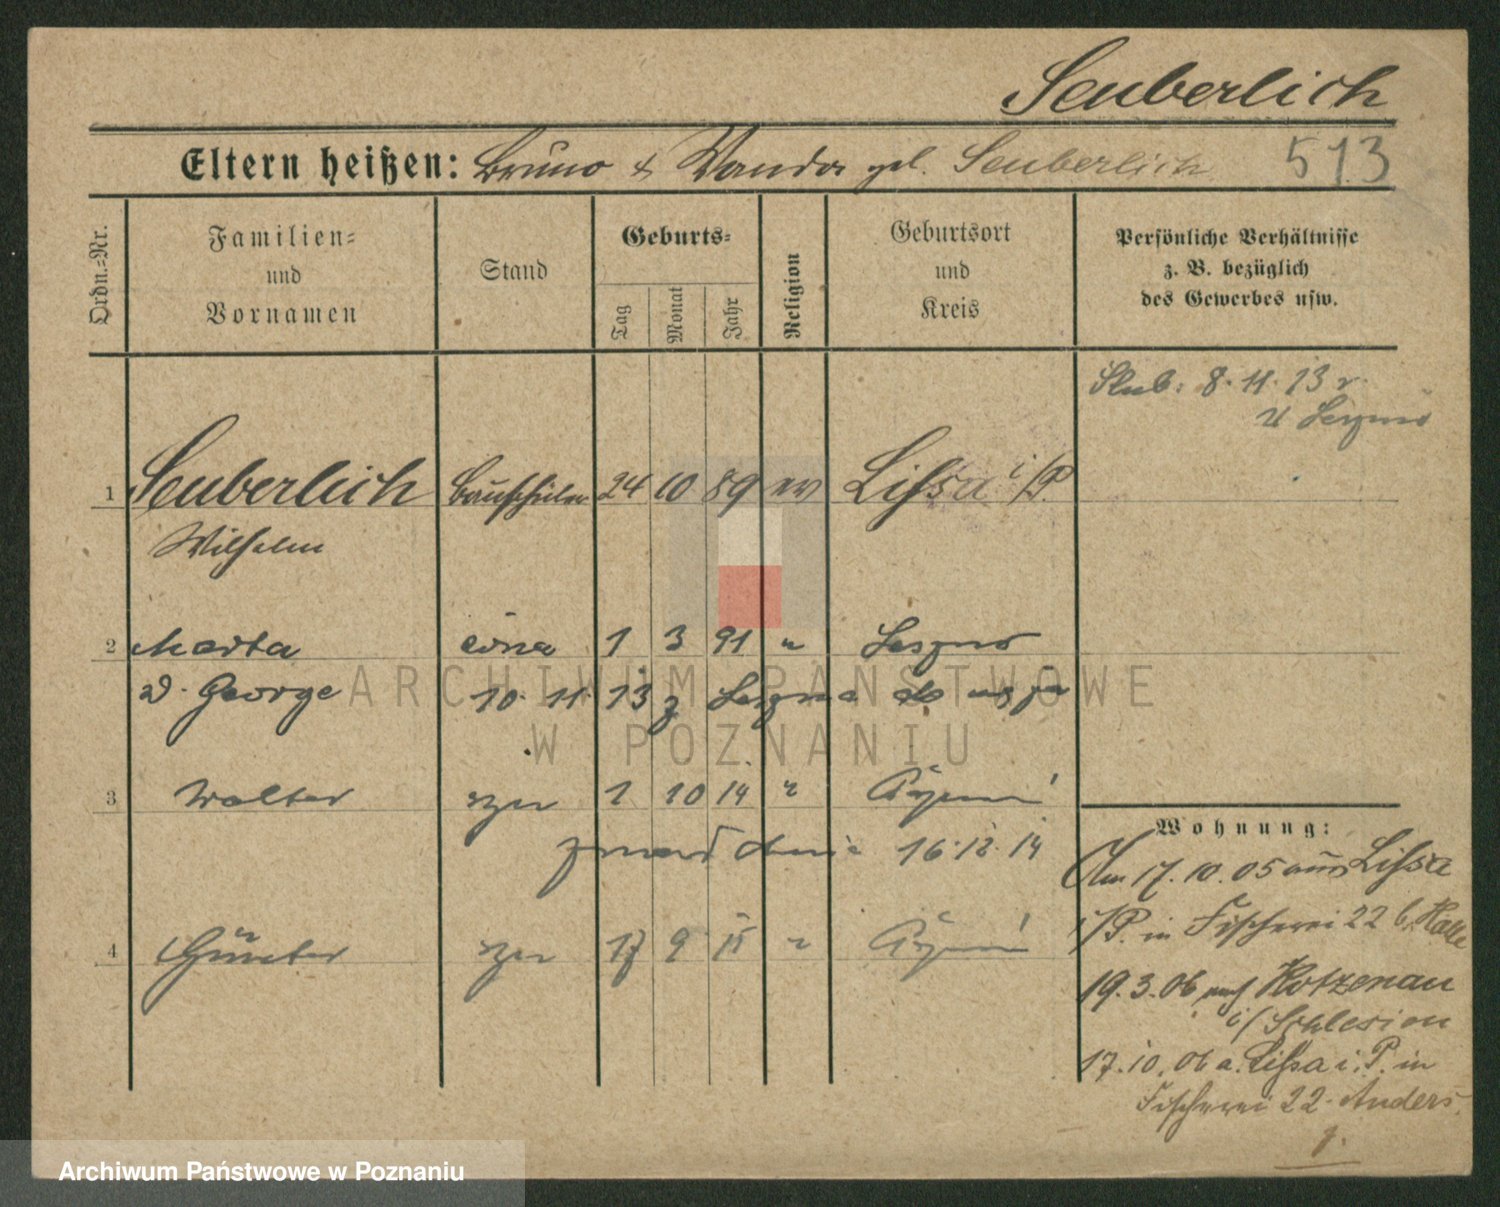 Seuberlich
Eltern heißen: Bruno & Wanda geb. Seuberlich 513
Ordn.-Nr.
Familien-
und
Vornamen
Stand
Geburts-
Tag
Monat
Jahr
Religion
Geburtsort
und
Kreis
Persönliche Verhältnisse
z. B. bezüglich
des Gewerbes usw.
Slub: 8. 11. 13 r.
w Lesznie
1 Seuberlich Bauschüler 24 10 89 ev Lissa i/P.
Wilhelm
2 Marta żona 1 3 91 " Leszno
d. George 10. 11. 13 z Leszna
3 Walter syn 1 10 14 "
16. 12. 14
4 Günter syn 17 9 15 "
Wohnung:
Am 17. 10. 05 aus Lissa
i/P. in Fischerei 22 b. Halle
19. 3. 06 nach Kotzenau
i/ Schlesien
17. 10. 06 a. Lissa i. P. in
Fischerei 22. Anders.
1.
ARCHIWUM PAŃSTWOWE
W POZNANIU
Archiwum Państwowe w Poznaniu